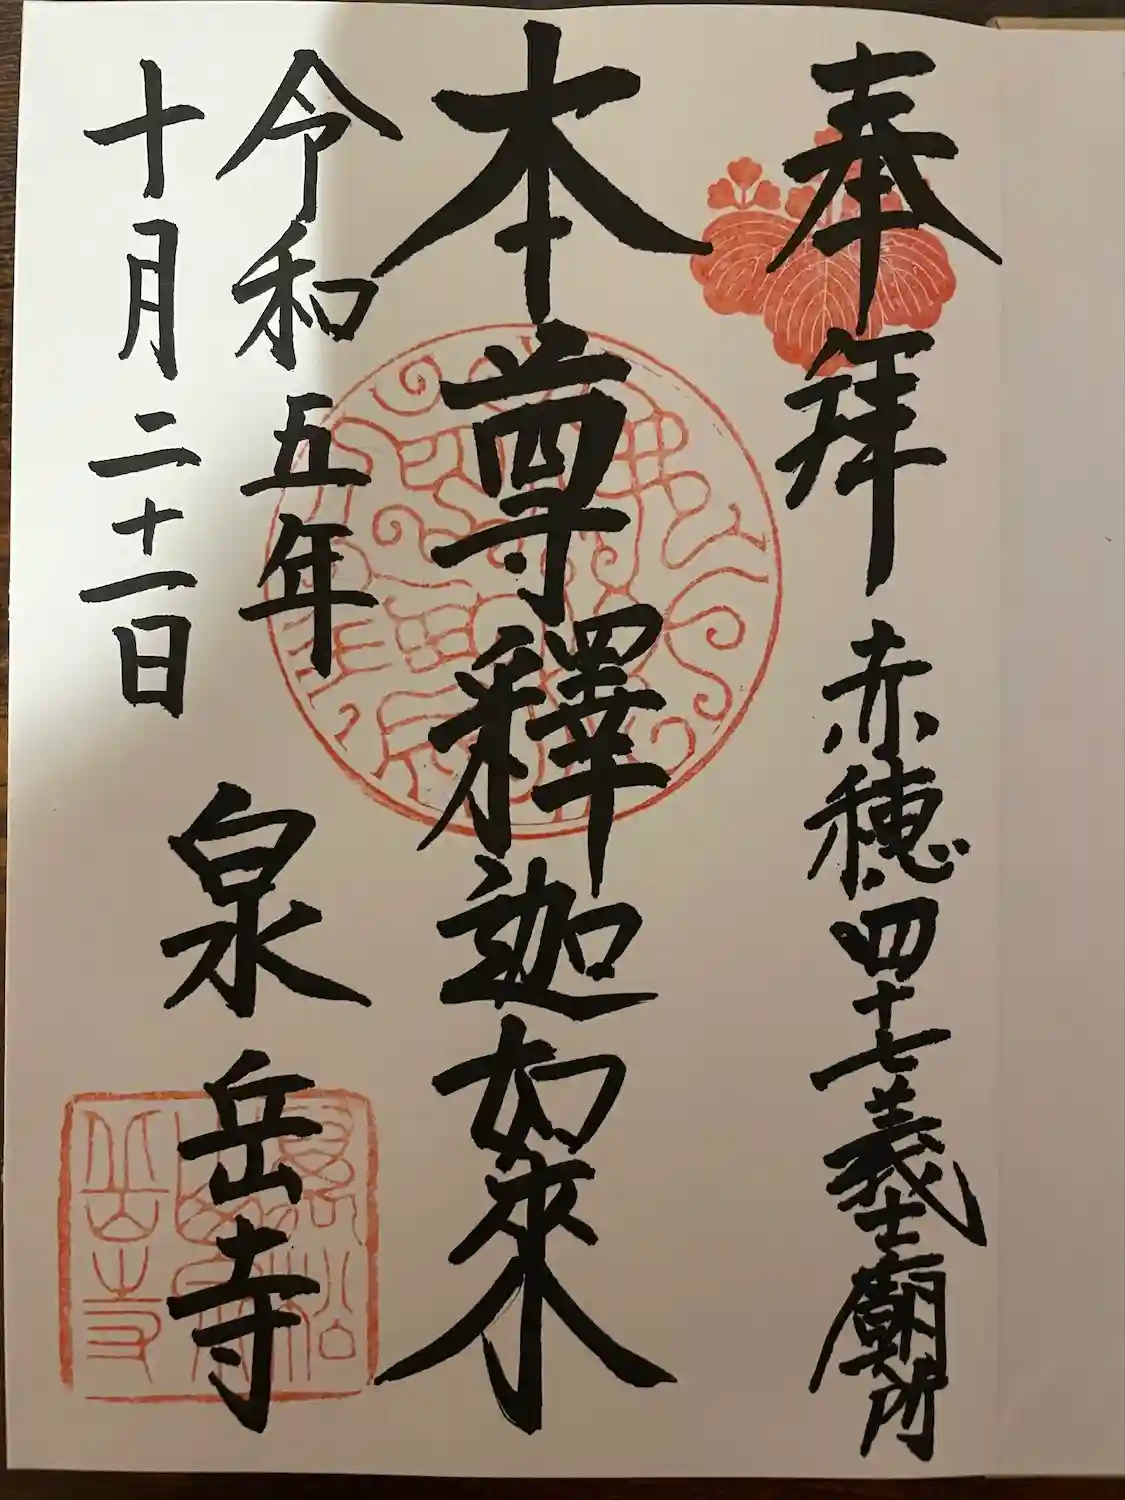 奉拝 赤穂四十七義士廟所
本尊釋迦如來
令和五年 泉岳寺
十月二十一日